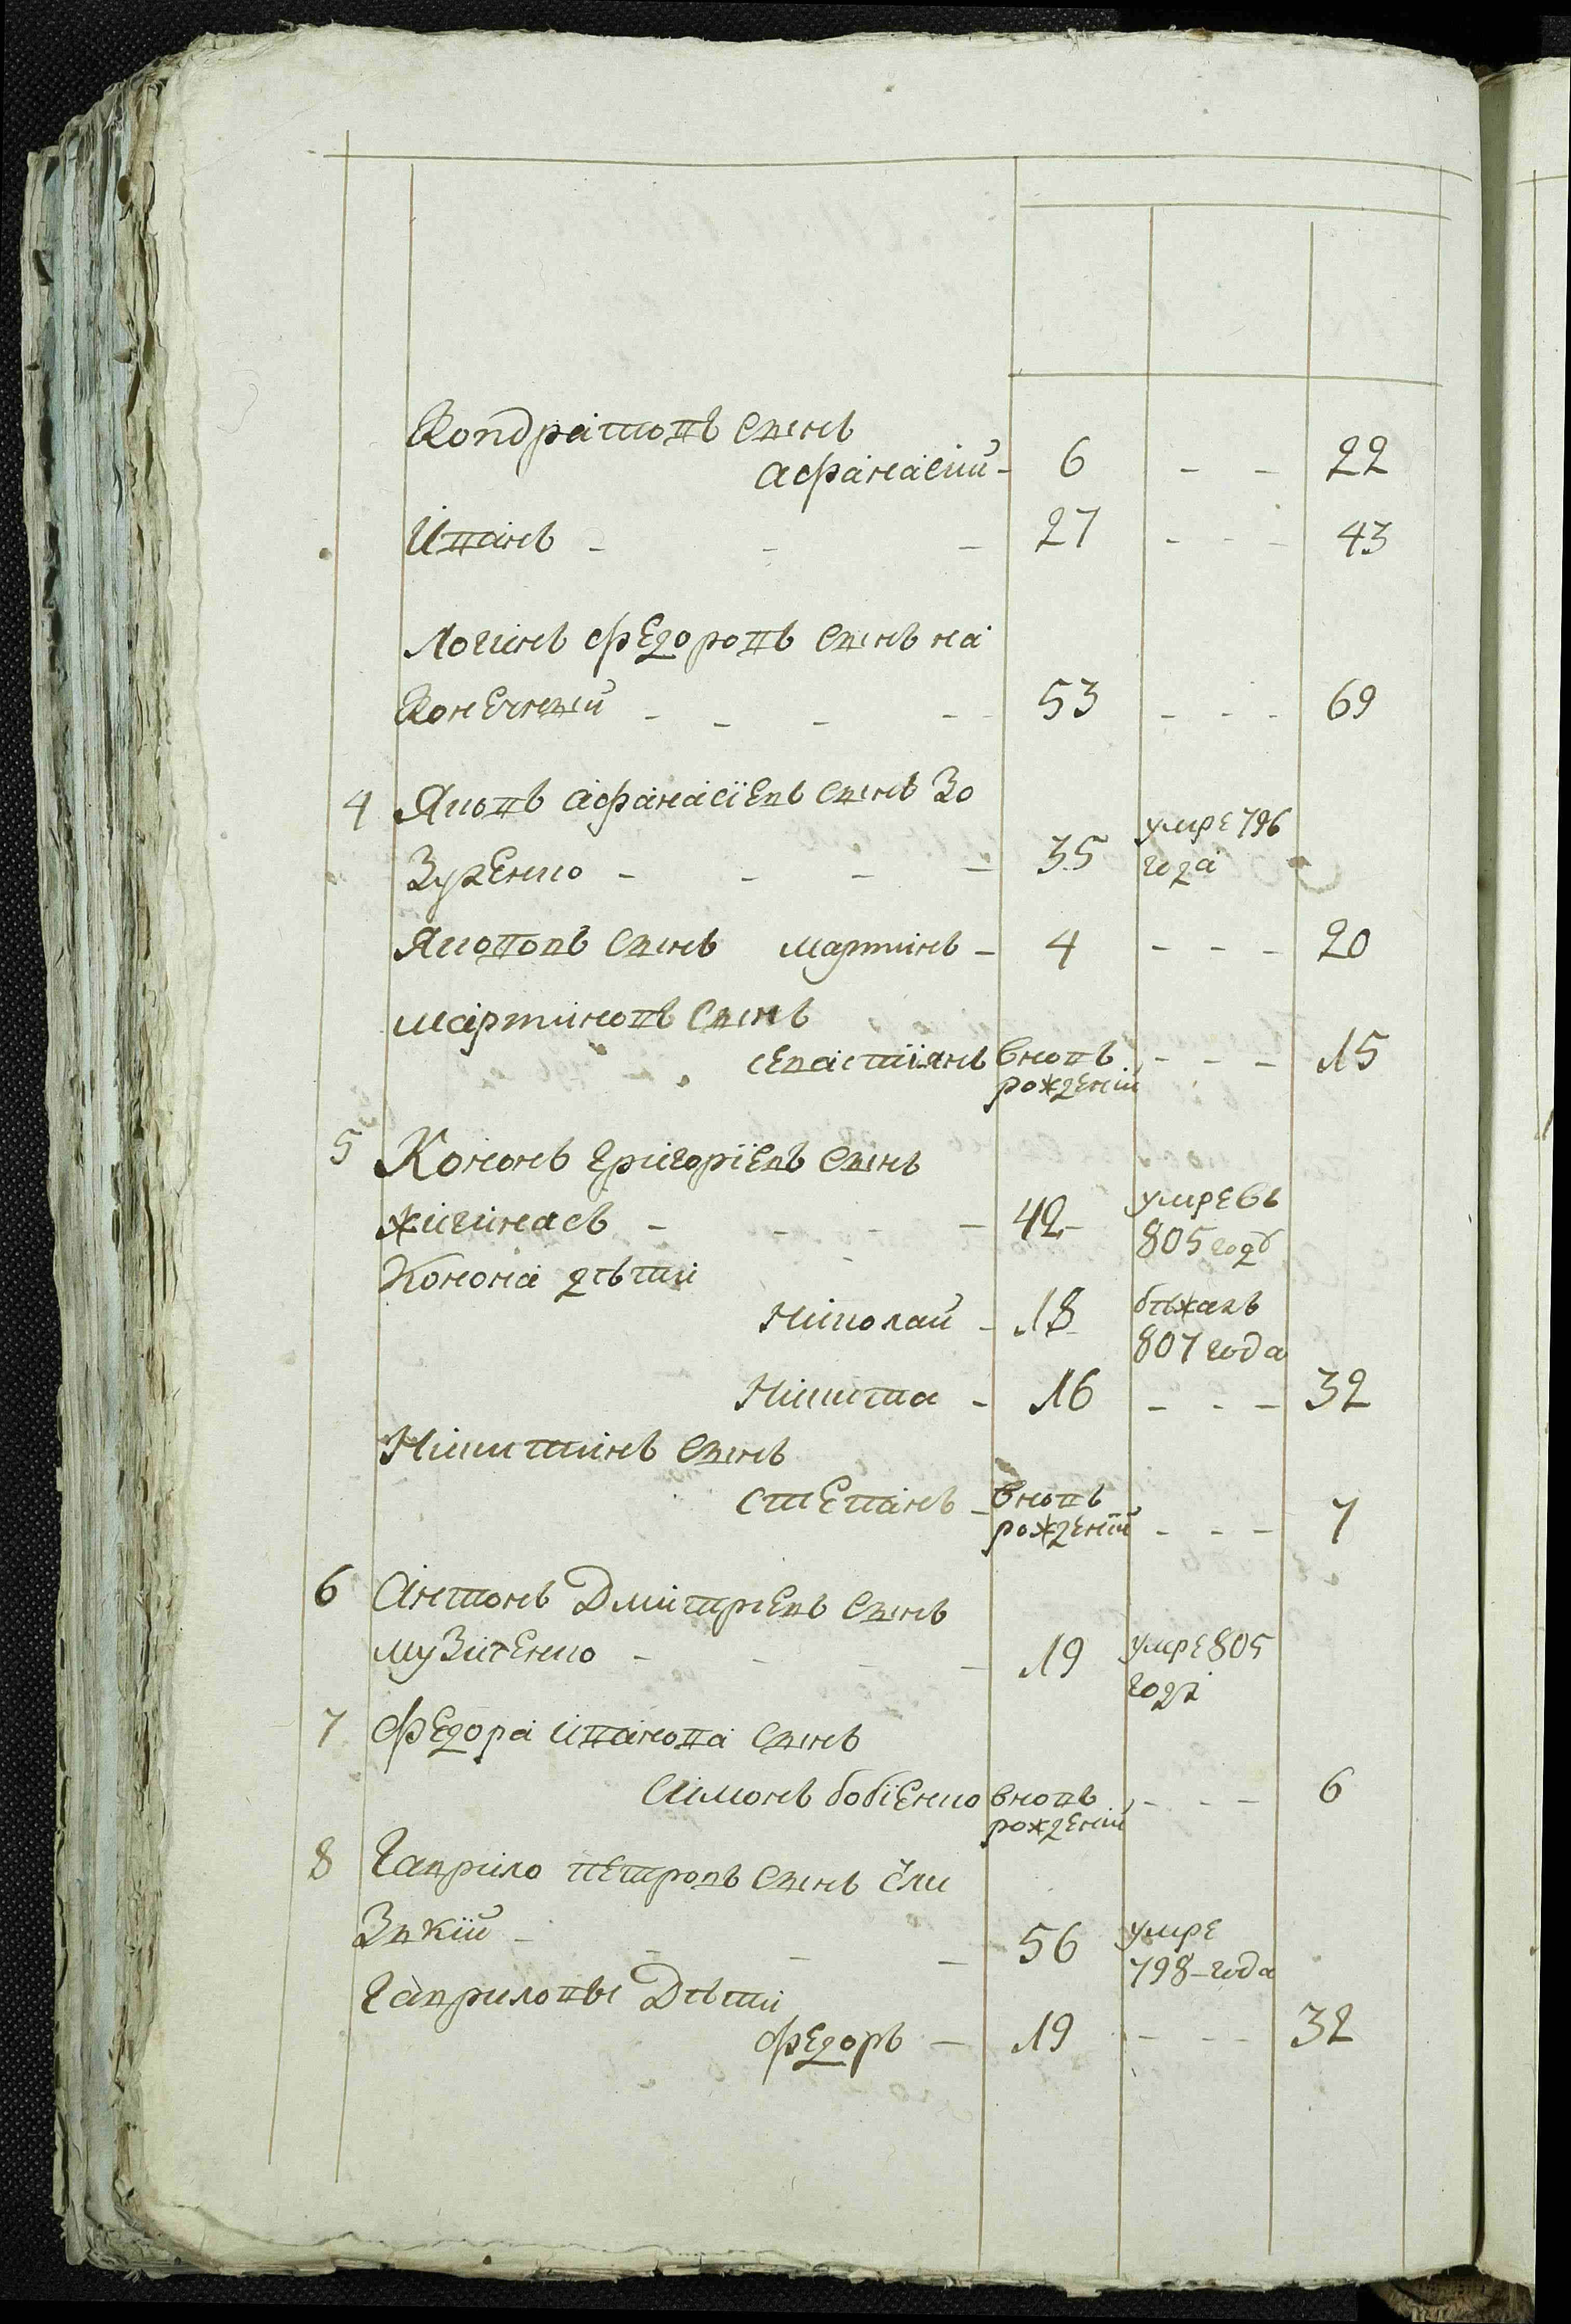 Кондратовъ сынъ
Афанасий - 6 - - 22
Иванъ - - - 27 - - - 43
Логинъ Федоровъ сынъ на
конечный - - - - 53 - - - 69
4 Яковъ Афанасїевъ сынъ Зо
умре 796
Зуленко - - - - 35 года
Якововъ сынъ Мартинъ - 4 - - - 20
Мартиновъ сынъ
Севастїянъ вновь - - - 15
рожденій
5 Кононъ Григорїевъ сынъ
умре въ
Жигинасъ - - - - 42 - 805 годѣ
Конона дѣти
Николай - 18 бѣжалъ
807 года
Никита - 16 - - - 32
Никитинъ сынъ
Степанъ - вновь
рожденїй - - - 7
6 Антонъ Дмитрїевъ сынъ
Музиченко - - - - 19 умре 805
года
7 Федора Иванова сынъ
Симонъ Бобїенко вновь - - - 6
рожденій
8 Гаврило Петровъ сынъ
умре
- - - - 56 798-года
Гавриловы дѣти
Федоръ - 19 - - - 32